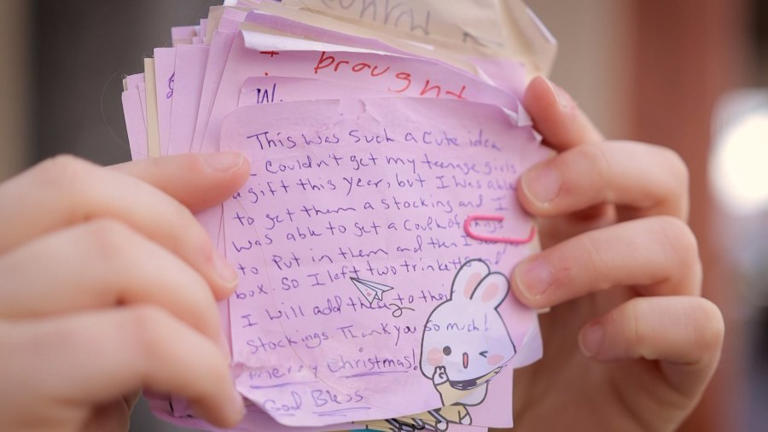 brought
W.
This was such a cute idea
I couldn't get my teenage girls
a gift this year, but I was able
to get them a stocking and I
was able to get a couple of things
to put in them and then I
box. So I left two trinkets and
I will add them to their
stockings. Thank you so much!
Merry Christmas!
God Bless